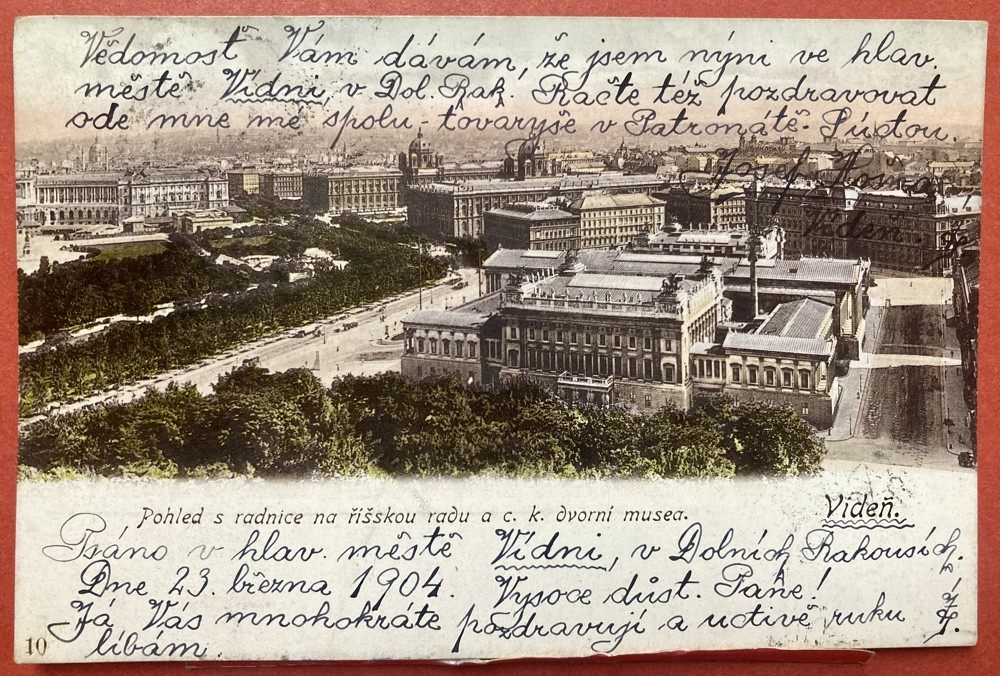 Vědomost Vám dávám, že jsem nýni ve hlav.
městě Vídni, v Dol. Rak. Račte též pozdravovat
ode mne mé spolu-tovaryše v Patronátě. Súctou.
Josef
Vídeň.
Pohled s radnice na říšskou radu a c. k. dvorní musea.
Vídeň.
Psáno v hlav. městě Vídni, v Dolních Rakousích.
Dne 23. března 1904. Vysoce důst. Pane!
Já Vás mnohokráte pozdravují a uctivě ruku
líbám.
10